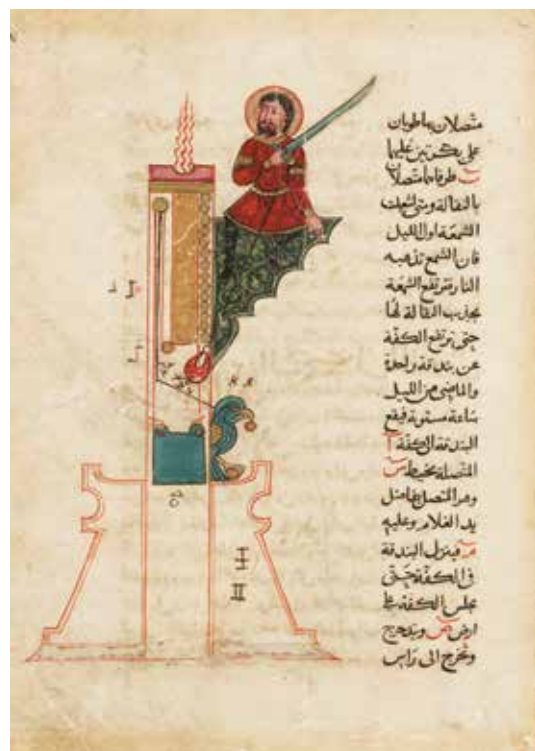 متصلان بها طويان
على بكرتين عليهما
طرفاهما متصلان
بالثقالة ومتى اشعلت
الشمعة اول الليل
فان الشمع تذهبه
النار فترتفع الشمعة
بجذب الثقالة لها
حتى ترتفع الكفة
عن بندقة واحدة
والماضى من الليل
ساعة مستوية فيقع
البندقة الى الكفة آ
المتصلة بخيط س
وهو المتصل بفاضل
يد الغلام وعليه
فينزل البندقة
فى الكفة حتى
يجلس الكفة على
ارض ص ويتدحرج
وتخرج الى راس